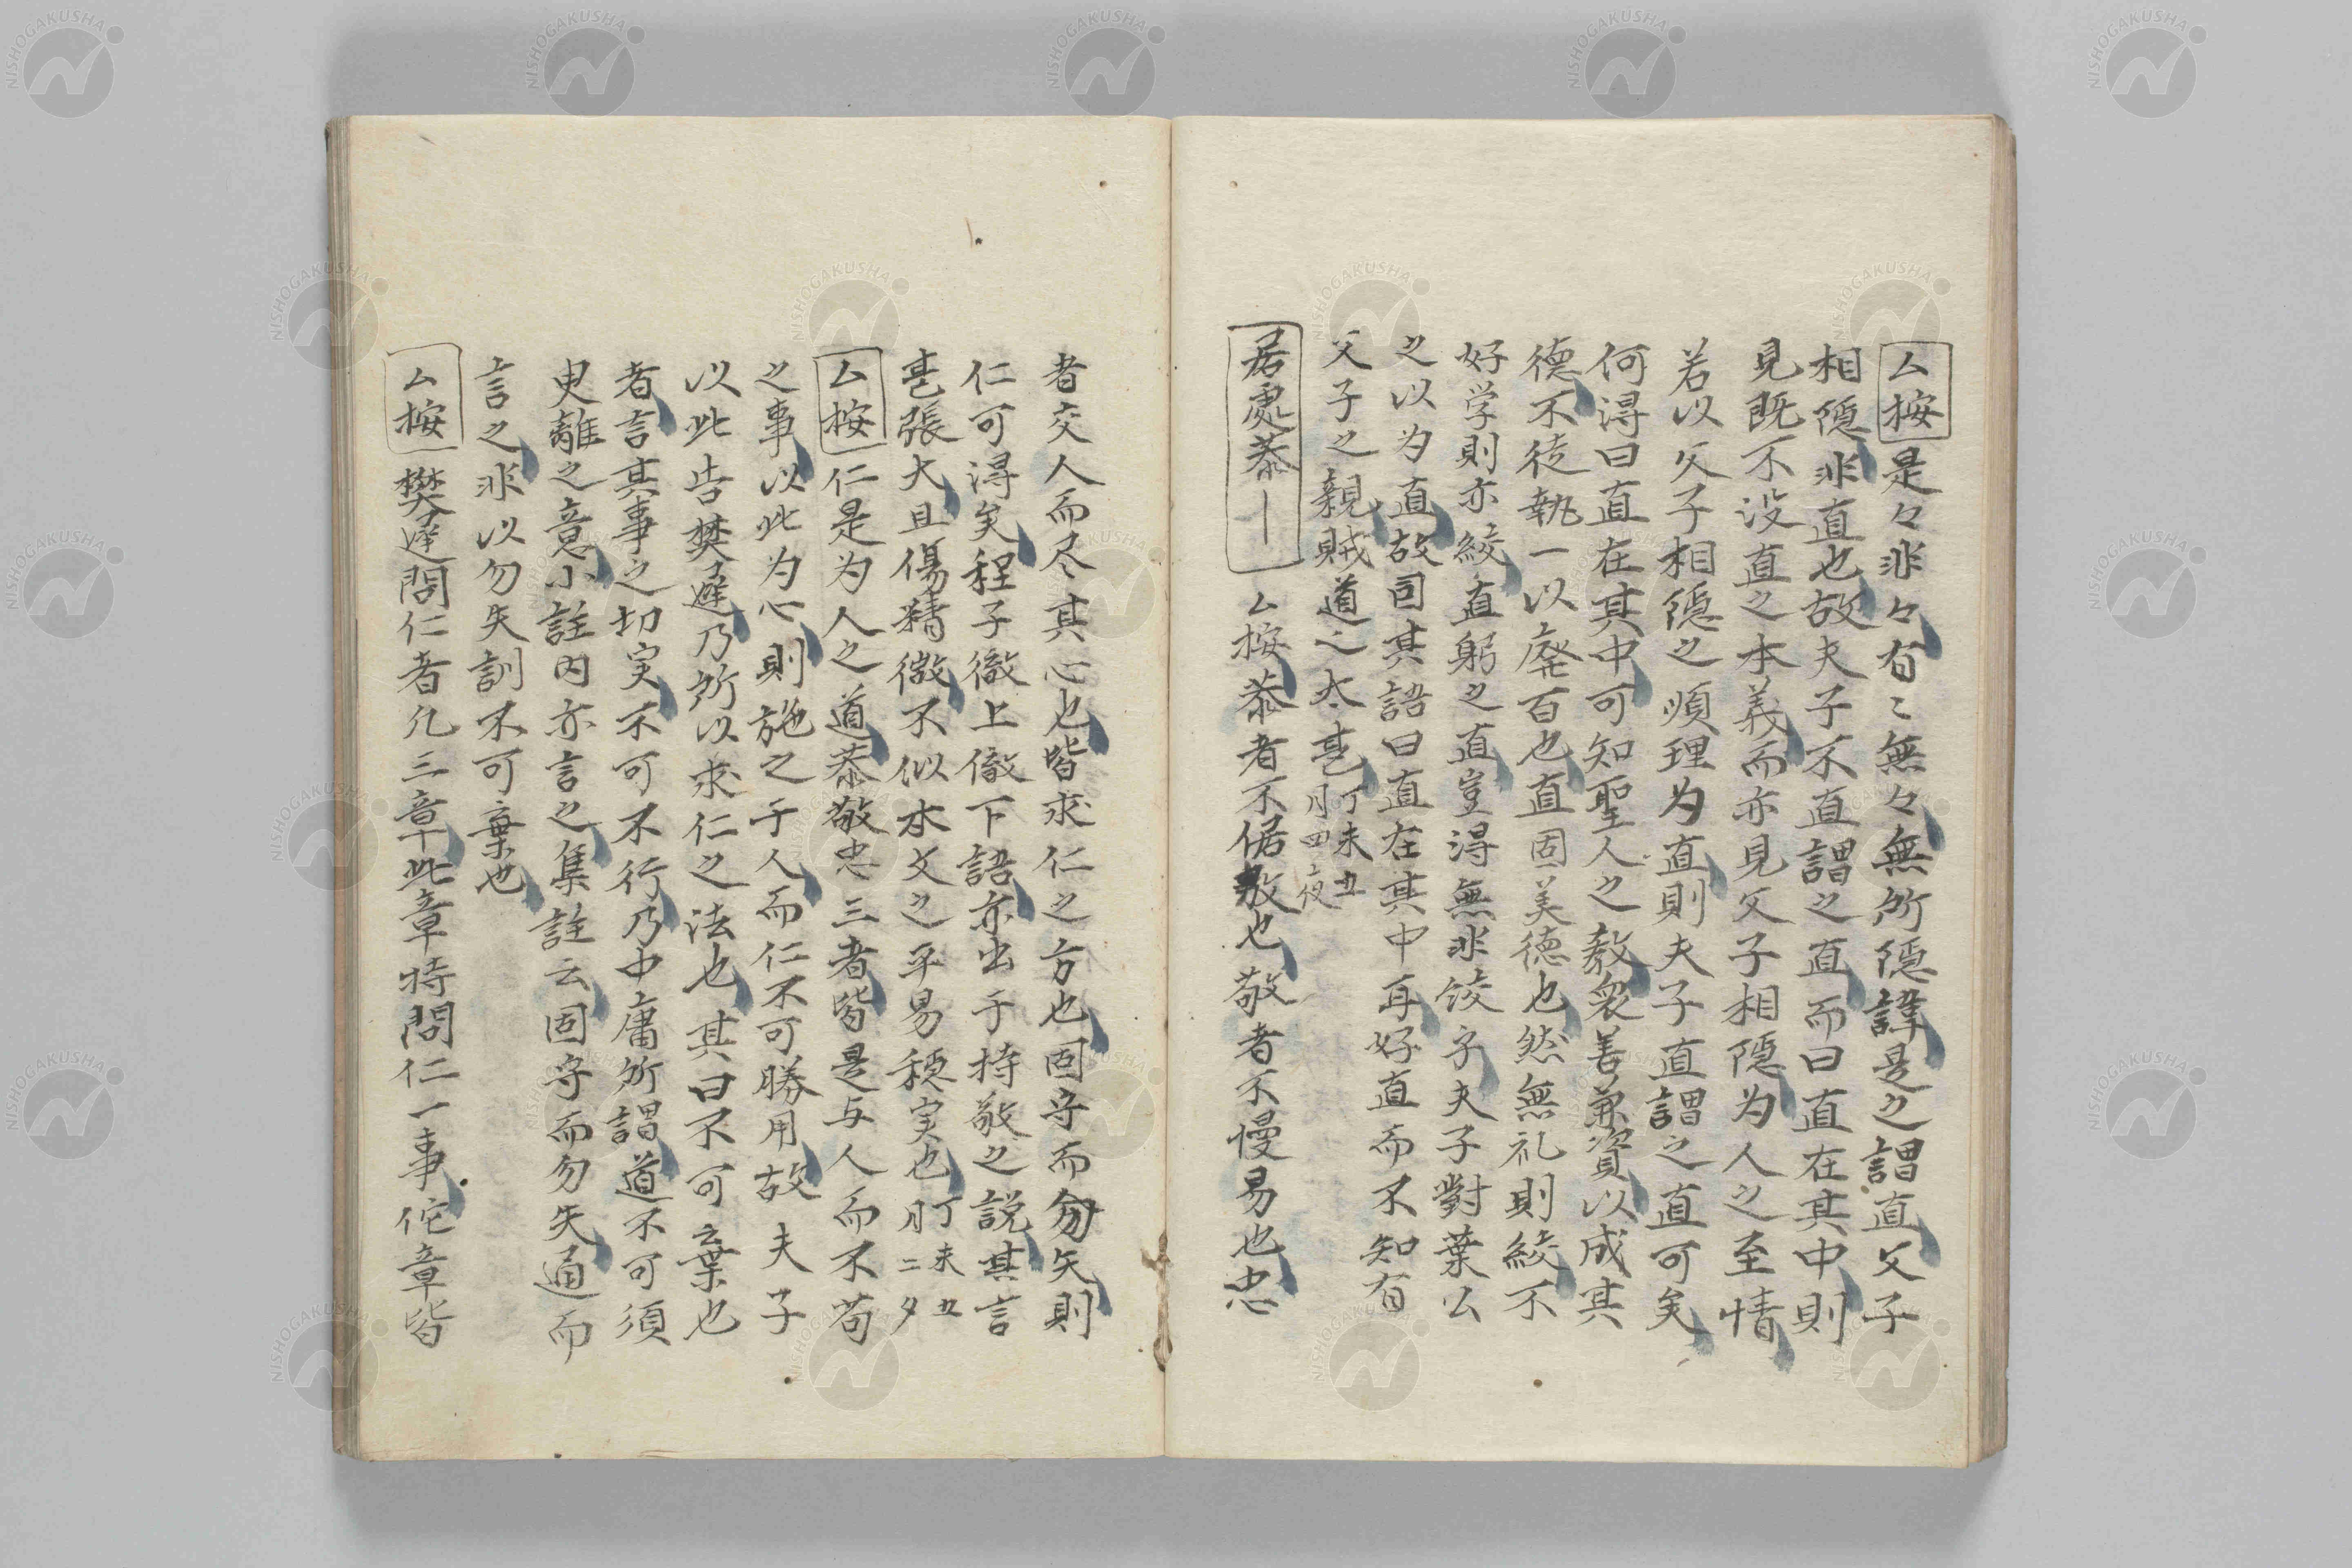 厶按是々非々有〻無々無所隠諱是之謂直父子
相隠非直也故夫子不直謂之直而曰直在其中則
見既不没直之本義而亦見父子相隠為人之至情
若以父子相隠之順理为直則夫子直謂之直可矣
何淂曰直在其中可知聖人之教衆善兼資以成其
德不徒執一以廢百也直固美德也然無礼則絞不
好学則亦絞直躬之直豈淂無非絞乎夫子對葉公
之以为直故司其語曰直在其中耳好直而不知有
父子之親賊道之太甚丁未丑
月四夜
居處恭｜厶按恭者不倨敖也敬者不慢易也忠
者交人而尽其心也皆求仁之方也固守而勿失則
仁可淂矣程子徹上徹下語亦出于持敬之説其言
甚張大且傷精微不似本文之平易穏実也丁未丑
月二夕
厶按仁是为人之道恭敬忠三者皆是与人而不苟
之事以此为心則施之于人而仁不可勝用故夫子
以此告樊遲乃所以求仁之法也其曰不可棄也
者言其事之切実不可不行乃中庸所謂道不可須
臾離之意小註内亦言之集註云固守而勿失通而
言之非以勿失訓不可棄也
厶按樊遲問仁者凡三章此章特問仁一事佗章皆
NISHOGAKUSHA